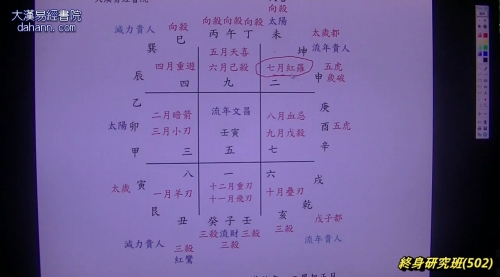 大漢易經書院
dahann.com
向殺
太陽
向殺 向殺向殺
減力貴人 巳 丙 午 丁 未 太歲都
巽 五月天喜 坤 流年貴人
四月重遊 六月己殺 七月紅羅 五虎
辰 四 九 二 申 歲破
乙 庚
二月暗箭 流年文昌 八月血忌
太陽 卯 三月小刀 壬寅 九月戊殺 酉 五虎
甲 三 五 七 辛
八 一 六 戌
太歲 寅 一月羊刃 十二月重刃 十月疊刃
十一月飛刃 乾
艮 丑 癸 子 壬 亥 戊子都
三殺 流財 三殺 三殺
減力貴人 三殺 流年貴人
紅鸞
終身研究班(502)